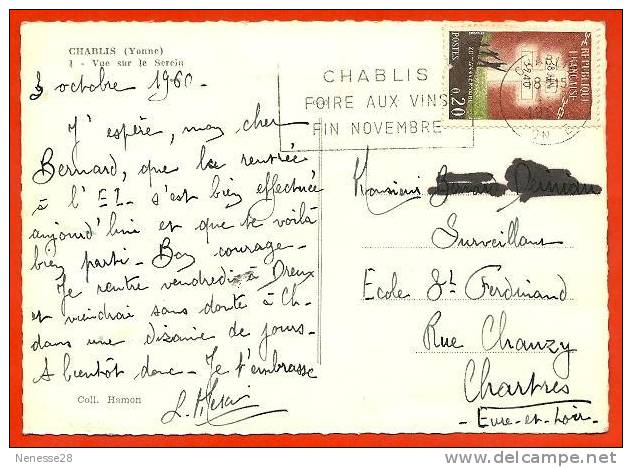 CHABLIS (Yonne)
1 - Vue sur le Serein
3 octobre 1960-
J'espère, mon cher
Bernard, que la rentrée
à l'EI- s'est bien effectuée
aujourd'hui et que te voilà
bien parti- Bon courage-
Je rentre vendredi à Dreux
et viendrai sans doute à Ch-
dans une dizaine de jours-
A bientôt donc- Je t'embrasse
Coll. Hamon
CHABLIS
FOIRE AUX VINS
FIN NOVEMBRE
POSTES 0,20
REPUBLIQUE FRANÇAISE
Monsieur
Surveillant
Ecole St Ferdinand
Rue Chanzy
Chartres
Eure-et-Loir-
Nenesse28
delcampe.net